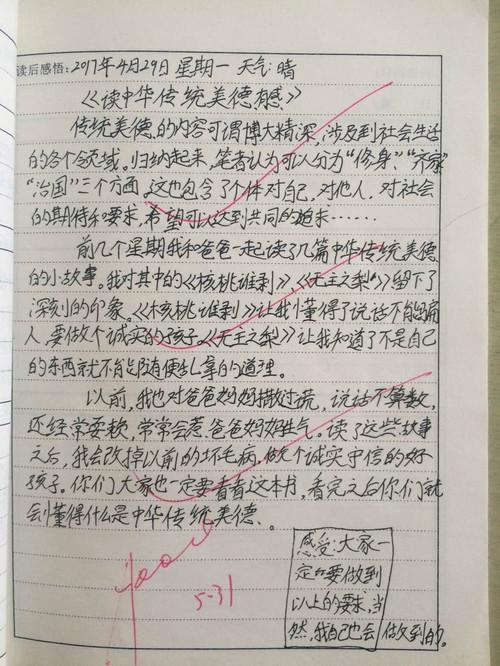 读后感悟：2017年4月29日 星期一 天气：晴
《读中华传统美德感》
传统美德的内容可谓博大精深，涉及到社会生活
的各个领域。归纳起来，笔者认为可以分为“修身”、“齐家”
“治国”三个方面。这也包含了个体对自己，对他人，对社会
的期待和要求，希望可以达到共同的追求……
前几个星期我和爸爸一起读了几篇中华传统美德
的小故事。我对其中的《核桃谁剥》、《无主之梨》留下了
深刻的印象。《核桃谁剥》让我懂得了说话不能骗
人，要做个诚实的孩子。《无主之梨》让我知道了不是自己
的东西就不能随便乱拿的道理。
以前，我也对爸爸妈妈撒过谎，说话不算数，
还经常耍赖，常常会惹爸爸妈妈生气。读了这些故事
之后，我会改掉以前的坏毛病，做个诚实守信的好
孩子。你们大家也一定要看看这本书，看完之后你们就
会懂得什么是中华传统美德、。
感受：大家一
定要做到
以上的要求，当
然，我自己也会做到的。
good
5-31